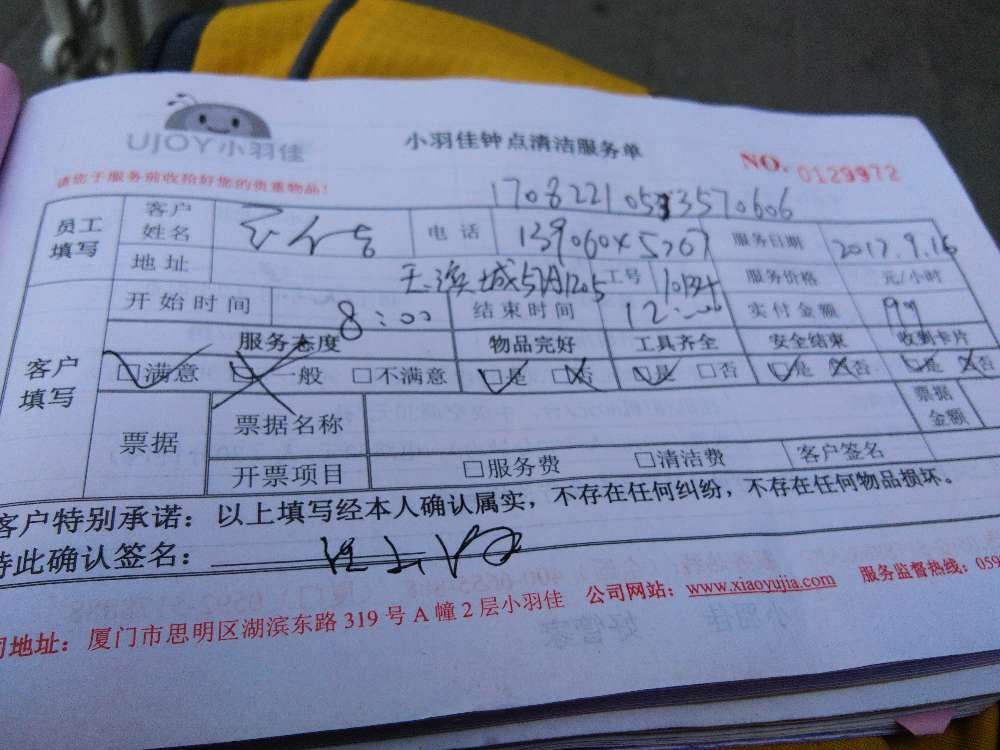 UJOY小羽佳
小羽佳钟点清洁服务单
NO. 0129972
请您于服务前收拾好您的贵重物品！
170822105933570606
员工填写 客户姓名 电话 服务日期 2017.9.16
地址 工号 服务价格 元/小时
客户填写 开始时间 8:00 结束时间 12:00 实付金额 99
服务态度 物品完好 工具齐全 安全结束 收到卡片
□满意 □一般 □不满意 □是 □否 □是 □否 □是 □否 □是 □否
票据 票据名称 票据金额
开票项目 □服务费 □清洁费 客户签名
客户特别承诺：以上填写经本人确认属实，不存在任何纠纷，不存在任何物品损坏。
特此确认签名：
司地址：厦门市思明区湖滨东路319号A幢2层小羽佳 公司网站：www.xiaoyujia.com 服务监督热线：059